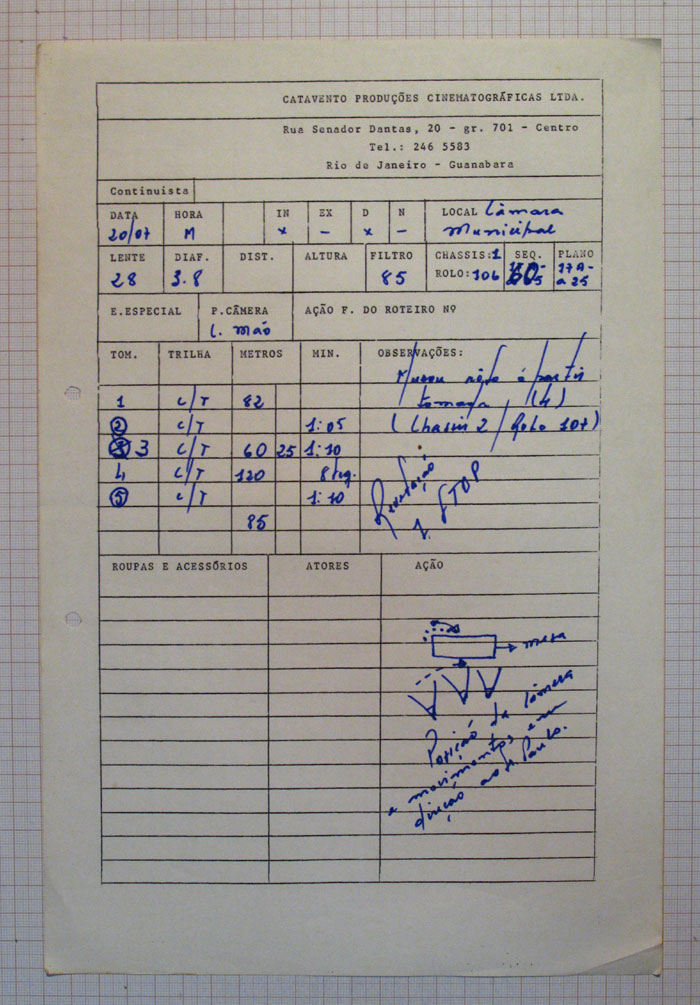 CATAVENTO PRODUÇÕES CINEMATOGRÁFICAS LTDA.
Rua Senador Dantas, 20 - gr. 701 - Centro
Tel.: 246 5583
Rio de Janeiro - Guanabara
Continuista
DATA HORA IN EX D N LOCAL Câmara
20/07 M x - x - Municipal
LENTE DIAF. DIST. ALTURA FILTRO CHASSIS: 1 SEQ. PLANO
28 3.8 85 ROLO: 106 60 17A-
a 25
E.ESPECIAL P.CÂMERA AÇÃO F. DO ROTEIRO Nº
C. mão
TOM. TRILHA METROS MIN. OBSERVAÇÕES:
Mudou rolo à partir
1 C/T 82 tomada (4)
2 C/T 1:05 (Chassis 2 / Rolo 107)
3 C/T 60 25 1:10
4 C/T 120 8 seg.
5 C/T 1:10
85
STOP
ROUPAS E ACESSÓRIOS ATORES AÇÃO
mesa
Posição da Câmera
e movimentos em
direção ao P. Paulo.